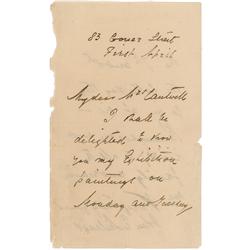 83 Gower Street
First April
My dear Mrs Cantwell
I shall be
delighted to show
you my Exhibition
paintings on
Monday and Tuesday